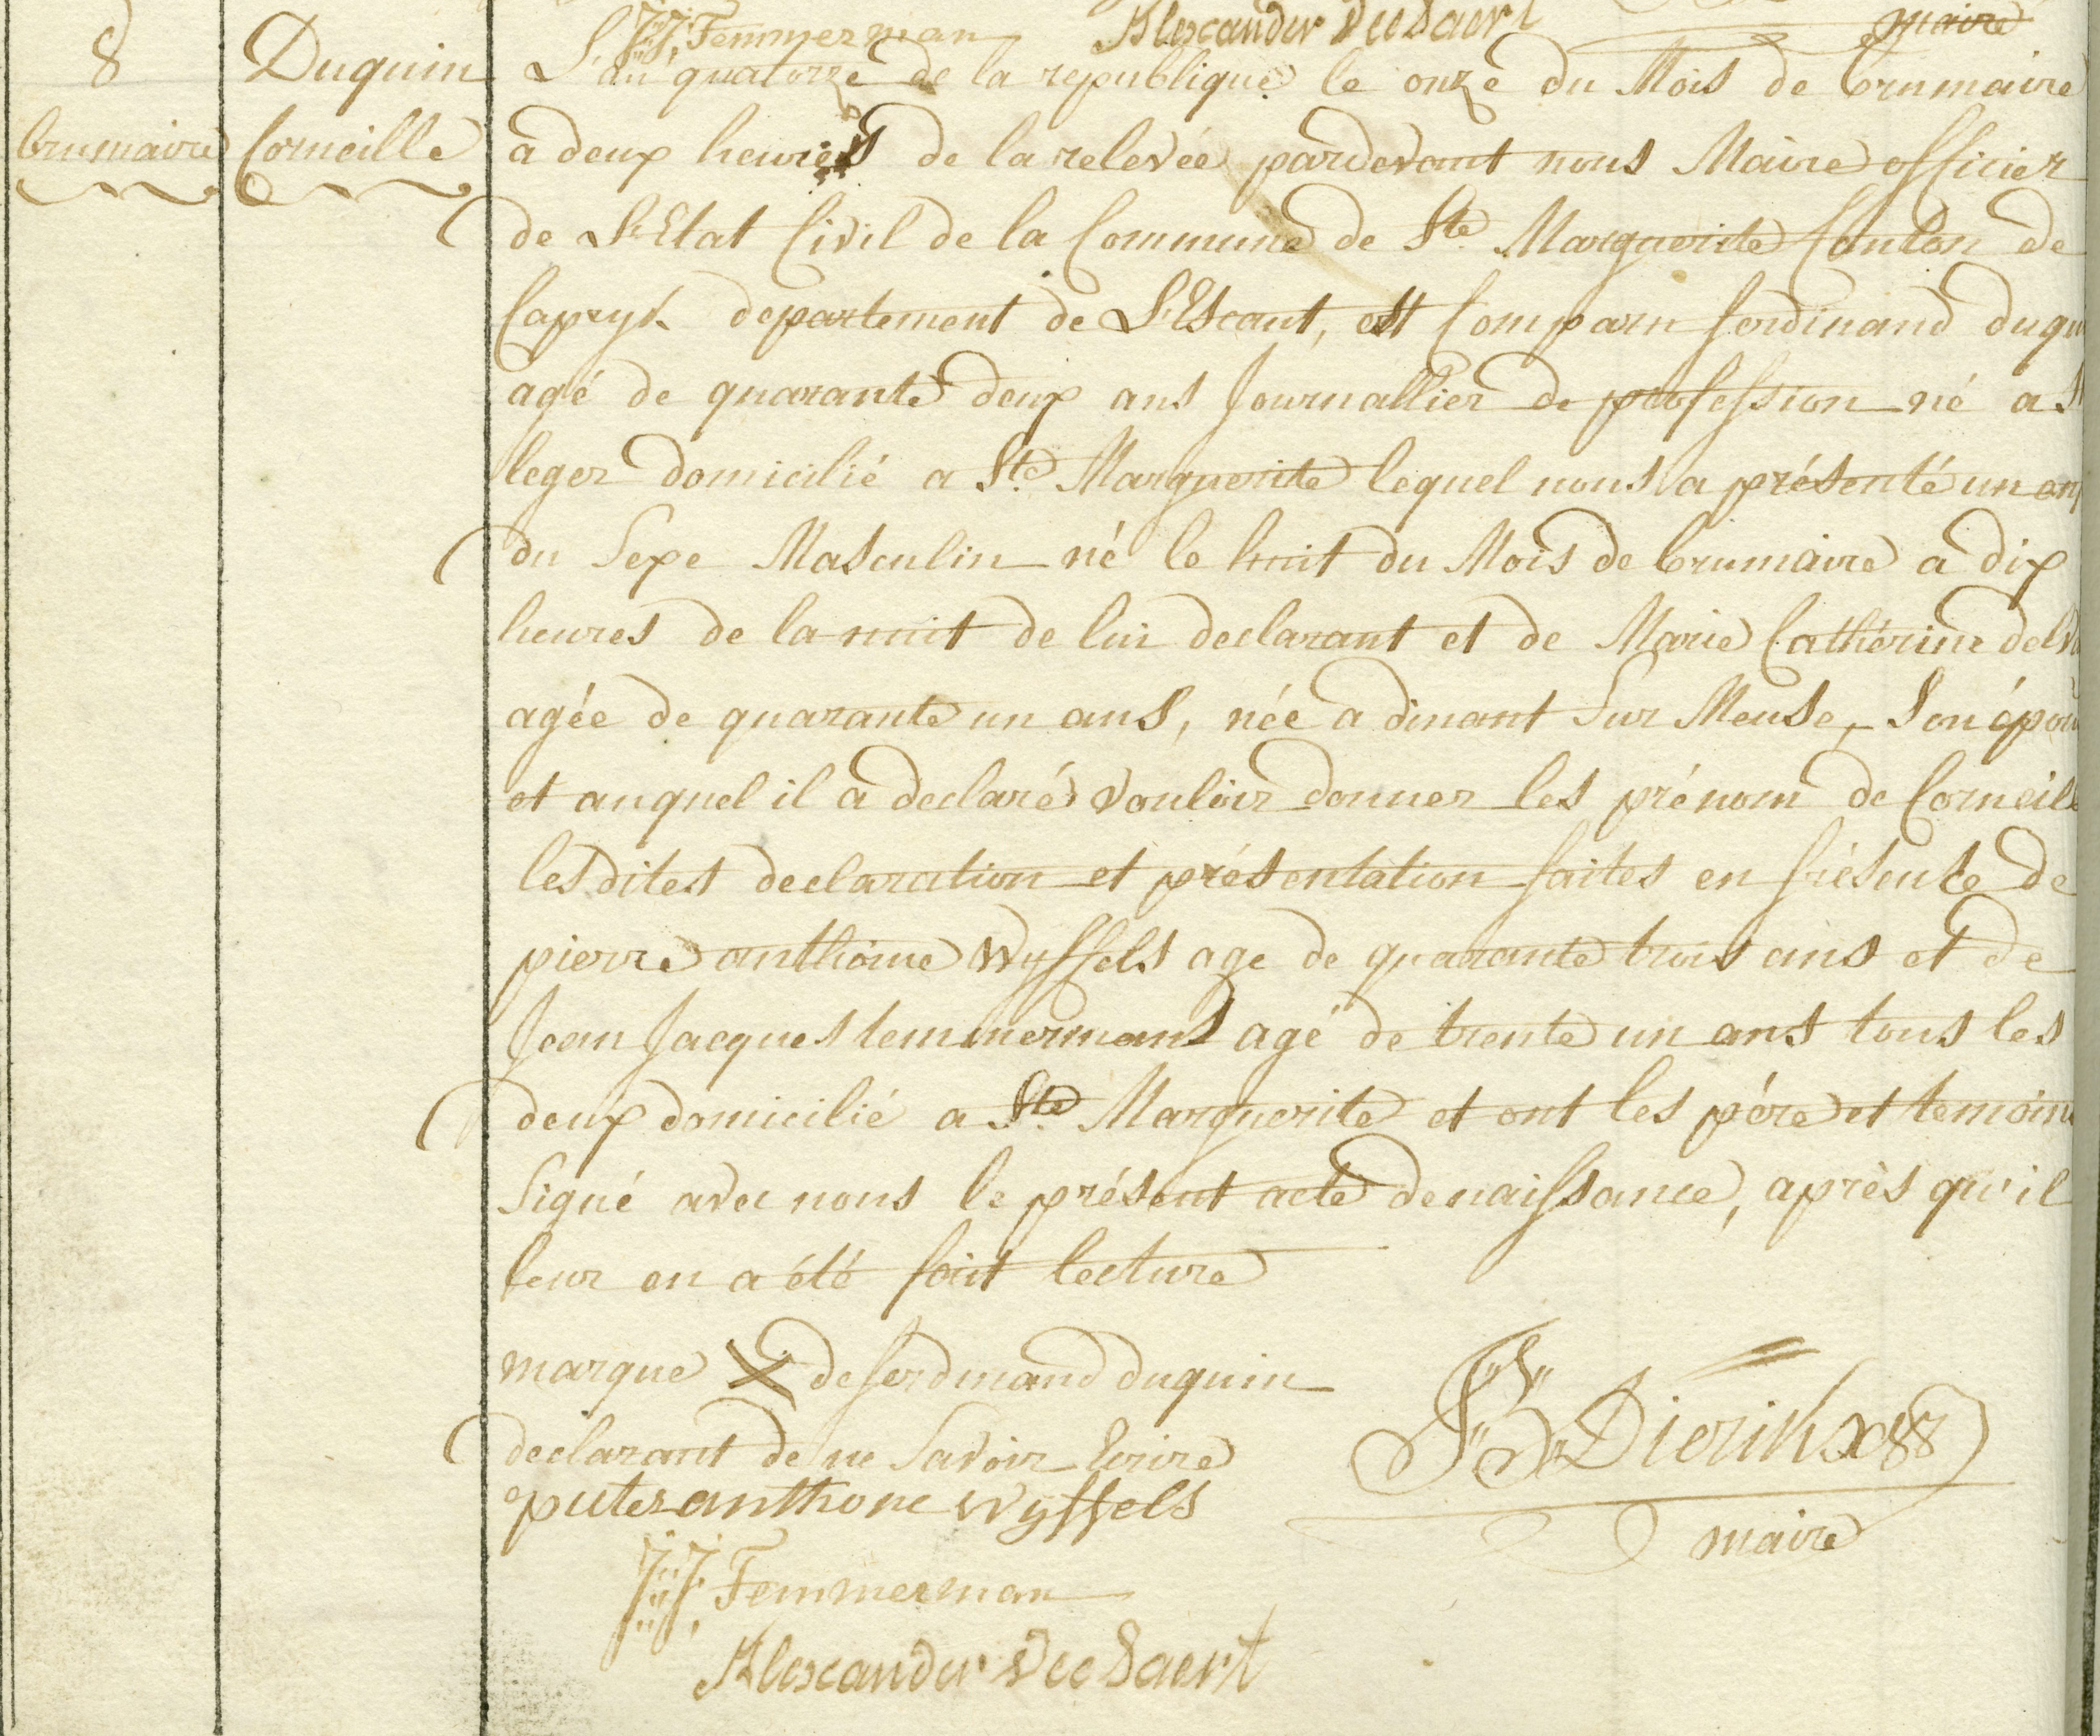 J J Temmerman Alexander
maire
8 Duquin L'an quatorze de la republique le onze du Mois de brumaire
brumaire Corneille a deux heures de la relevée pardevant nous Maire officier
de L'Etat Civil de la Commune de Ste Marguerite Canton de
Capryk departement de L'Escaut, est Comparu ferdinand duqu
agé de quarante deux ans Journallier de profession né a St
leger domicilié a Ste Marguerite lequel nous a présenté un enf
du Sexe Masculin né le huit du Mois de brumaire a dix
heures de la nuit de lui declarant et de Marie Cathérine
agée de quarante un ans, née a dinant Sur Meuse, Son épou
et auquel il a declaré vouloir donner les prénom de Corneille
lesdites declaration et présentation faites en présence de
pierre anthoine Wyffels age de quarante trois ans et de
Jean Jacques temmermans agé de trente un ans tous les
deux domicilié a Ste Marguerite et ont les pére et temoins
Signé avec nous le présent acte de naissance, après qu'il
leur en a été fait lecture
marque X de ferdinand duquin
declarant de ne Savoir Ecrire
pieter anthone wyffels
J J Temmerman
Alexander
Dierikx
maire